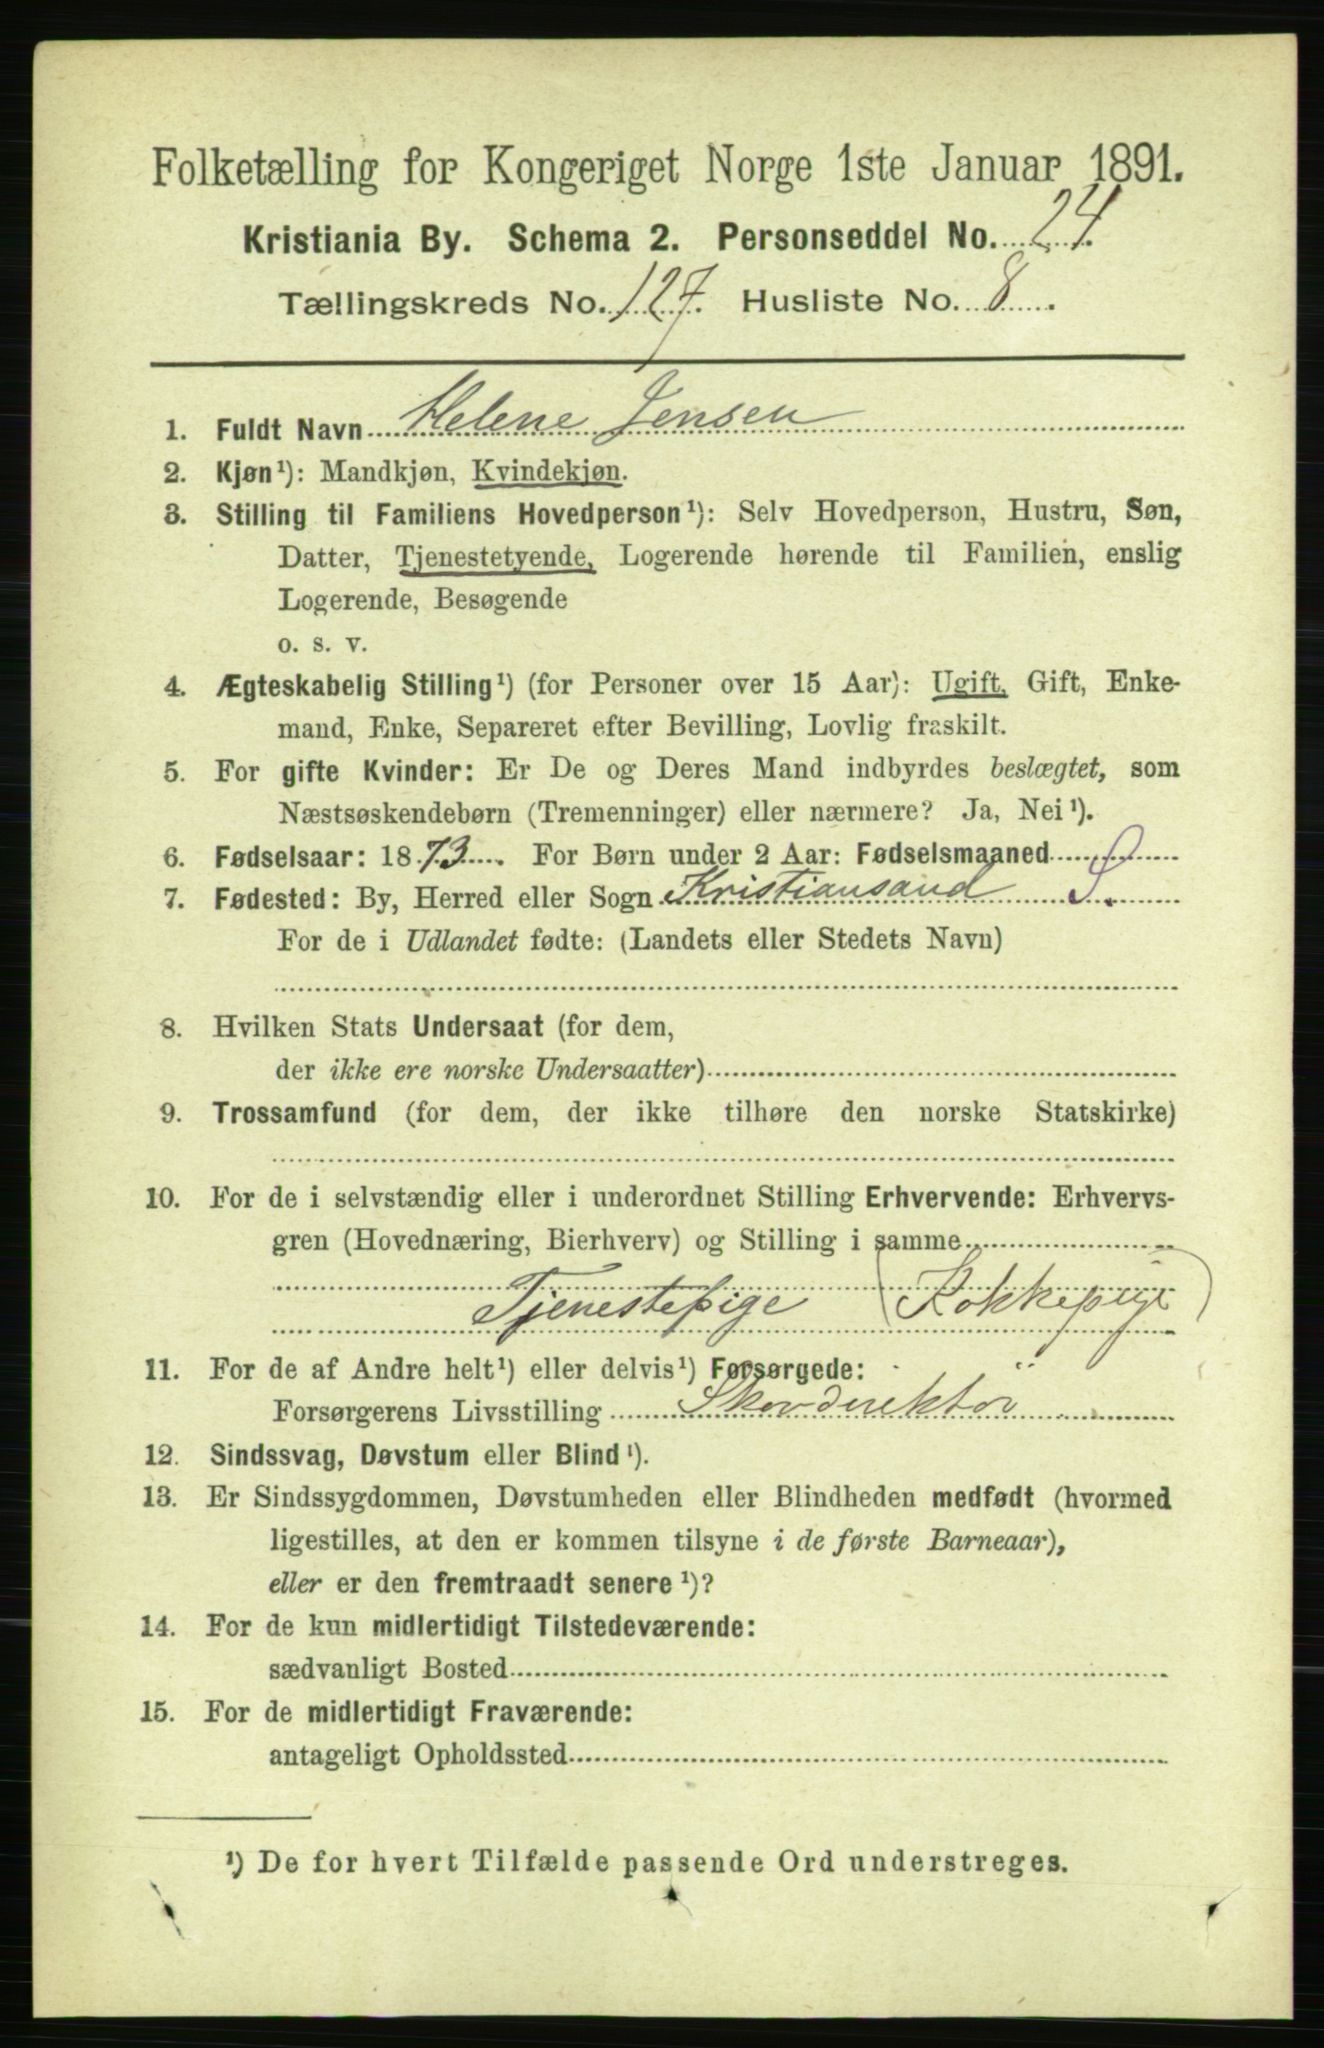 Folketælling for Kongeriget Norge 1ste Januar 1891.
Kristiania By. Schema 2. Personseddel No. 24.
Tællingskreds No. 127. Husliste No. 8.
1. Fuldt Navn Helene Jensen
2. Kjøn¹): Mandkjøn, Kvindekjøn.
3. Stilling til Familiens Hovedperson¹): Selv Hovedperson, Hustru, Søn,
Datter, Tjenestetyende, Logerende hørende til Familien, enslig
Logerende, Besøgende
o. s. v.
4. Ægteskabelig Stilling¹) (for Personer over 15 Aar): Ugift, Gift, Enke-
mand, Enke, Separeret efter Bevilling, Lovlig fraskilt.
5. For gifte Kvinder: Er De og Deres Mand indbyrdes beslægtet, som
Næstsøskendebørn (Tremenninger) eller nærmere? Ja, Nei¹).
6. Fødselsaar: 1873. For Børn under 2 Aar: Fødselsmaaned
7. Fødested: By, Herred eller Sogn Kristiansand S.
For de i Udlandet fødte: (Landets eller Stedets Navn)
8. Hvilken Stats Undersaat (for dem,
der ikke ere norske Undersaatter)
9. Trossamfund (for dem, der ikke tilhøre den norske Statskirke)
10. For de i selvstændig eller i underordnet Stilling Erhvervende: Erhvervs-
gren (Hovednæring, Bierhverv) og Stilling i samme
Tjenestepige (Kokkepige)
11. For de af Andre helt¹) eller delvis¹) Forsørgede:
Forsørgerens Livsstilling Skovdirektör
12. Sindssvag, Døvstum eller Blind¹).
13. Er Sindssygdommen, Døvstumheden eller Blindheden medfødt (hvormed
ligestilles, at den er kommen tilsyne i de første Barneaar),
eller er den fremtraadt senere¹)?
14. For de kun midlertidigt Tilstedeværende:
sædvanligt Bosted
15. For de midlertidigt Fraværende:
antageligt Opholdssted
¹) De for hvert Tilfælde passende Ord understreges.